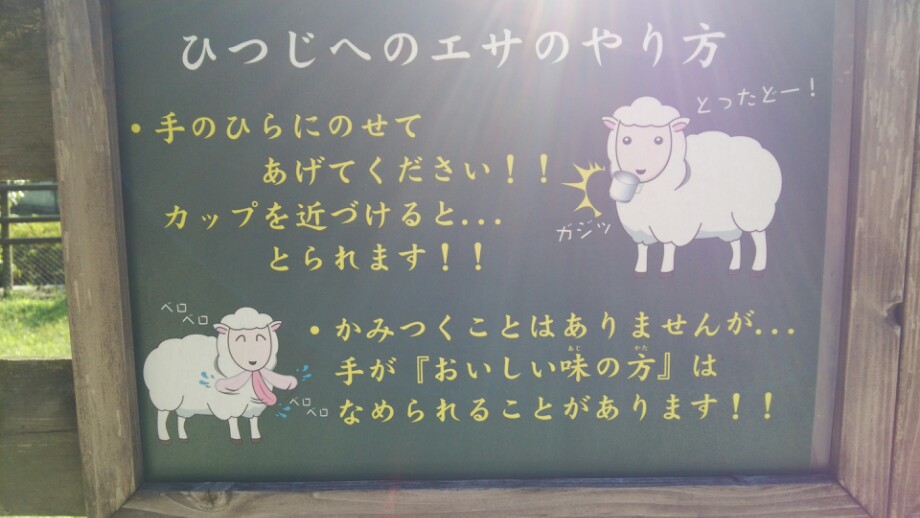 ひつじへのエサのやり方
・手のひらにのせて
あげてください！！
カップを近づけると...
とられます！！
とったどー！
ガジッ
ベロ
ベロ
・かみつくことはありませんが...
手が『おいしい味の方』は
あじ
かた
なめられることがあります！！
ベロ
ベロ